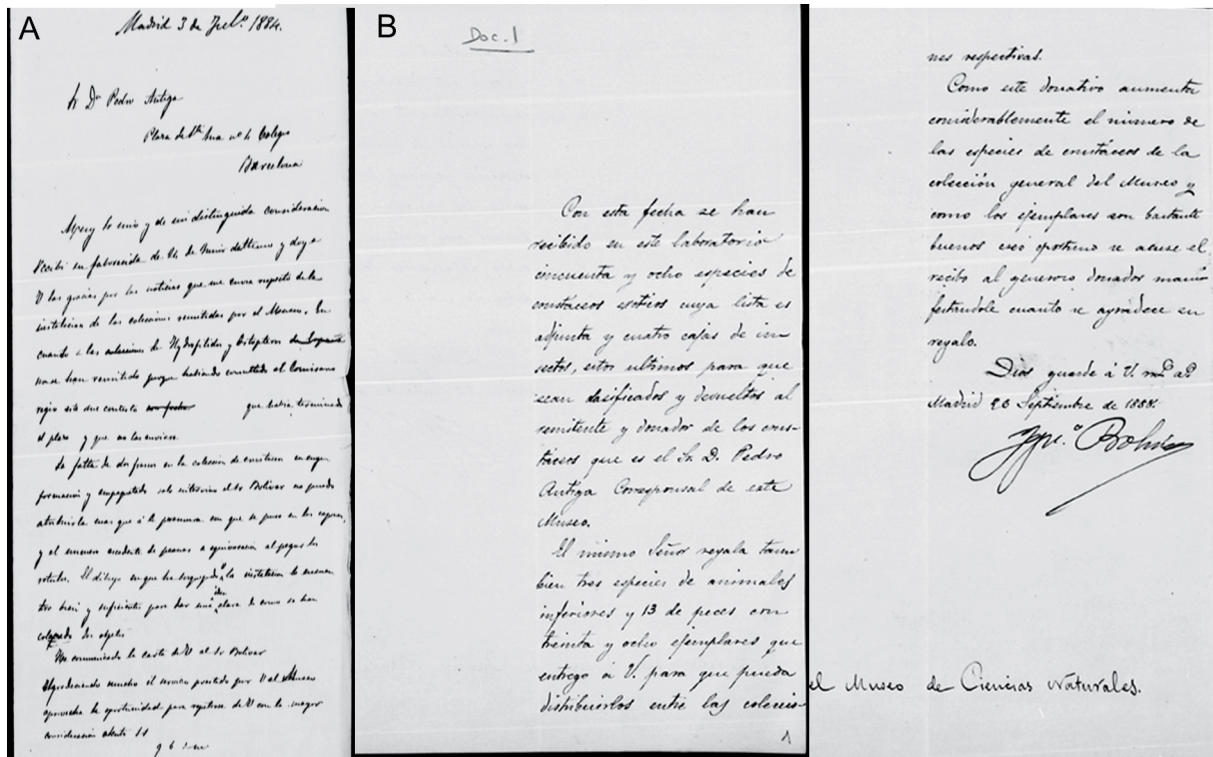 A
Madrid 3 de Jul.º 1884.
Sr Dn Pedro Antiga
Plaza de Sta Ana nº 4 Colegio
Barcelona
Muy Sr mio y de mi distinguida consideracion
Recibi su favorecida de de Junio ultimo y doy a
V las gracias por las noticias que me envia respecto de la
instalacion de las colecciones remitidas por el Museo. En
cuando a las colecciones de y
no se han remitido porque habiendo consultado al Comisario
regio sobre contesta que habia terminado
el plazo y que no las enviase
La falta de dos frascos en la coleccion de en cuya
formacion y empaquetado solo el Sr Bolivar no puedo
atribuirla mas que á la premura con que se puso en los cajones,
y el de a equivocacion al pegar los
rotulos. El dibujo en que la instalacion lo
tro bien y suficiente para dar una idea clara de como se han
colocado los objetos
He comunicado la carta de V al Sr Bolivar
Agradeciendo mucho el servicio prestado por V al Museo
aprovecho la oportunidad para de V con la mayor
consideracion atento SS
B
Doc. 1
Con esta fecha se han
recibido en este laboratorio
cincuenta y ocho especies de
crustáceos exóticos cuya lista es
adjunta y cuatro cajas de in
sectos, estos ultimos para que
sean clasificados y devueltos al
remitente y donador de los crus-
táceos que es el Sr. D. Pedro
Antiga Corresponsal de este
Museo.
El mismo Señor regala tam
bien tres especies de animales
inferiores y 13 de peces con
treinta y ocho ejemplares que
entrego á V. para que pueda
distribuirlos entre las coleccio-
1
nes respectivas.
Como este donativo aumenta
considerablemente el número de
las especies de crustáceos de la
colección general del Museo y
como los ejemplares son bastante
buenos creo oportuno se acuse el
recibo al generoso donador mani
festandole cuanto se agradece su
regalo.
Dios guarde á V. ms. as.
Madrid 26 Septiembre de 1888.
Ign.º Bolívar
el Museo de Ciencias Naturales.